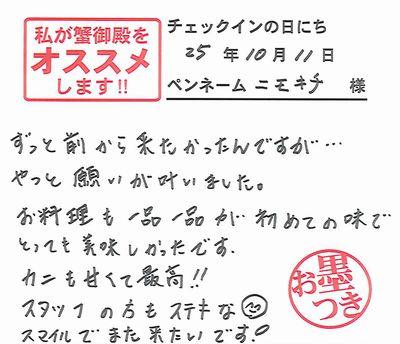 私が蟹御殿を
オススメ
します!!
チェックインの日にち
25 年 10 月 11 日
ペンネーム ニモキチ 様
ずっと前から来たかったんですが…
やっと願いが叶いました。
お料理も一品一品が初めての味で
とっても美味しかったです。
カニも甘くて最高!!
スタッフの方もステキな
スマイルでまた来たいです!
お墨つき